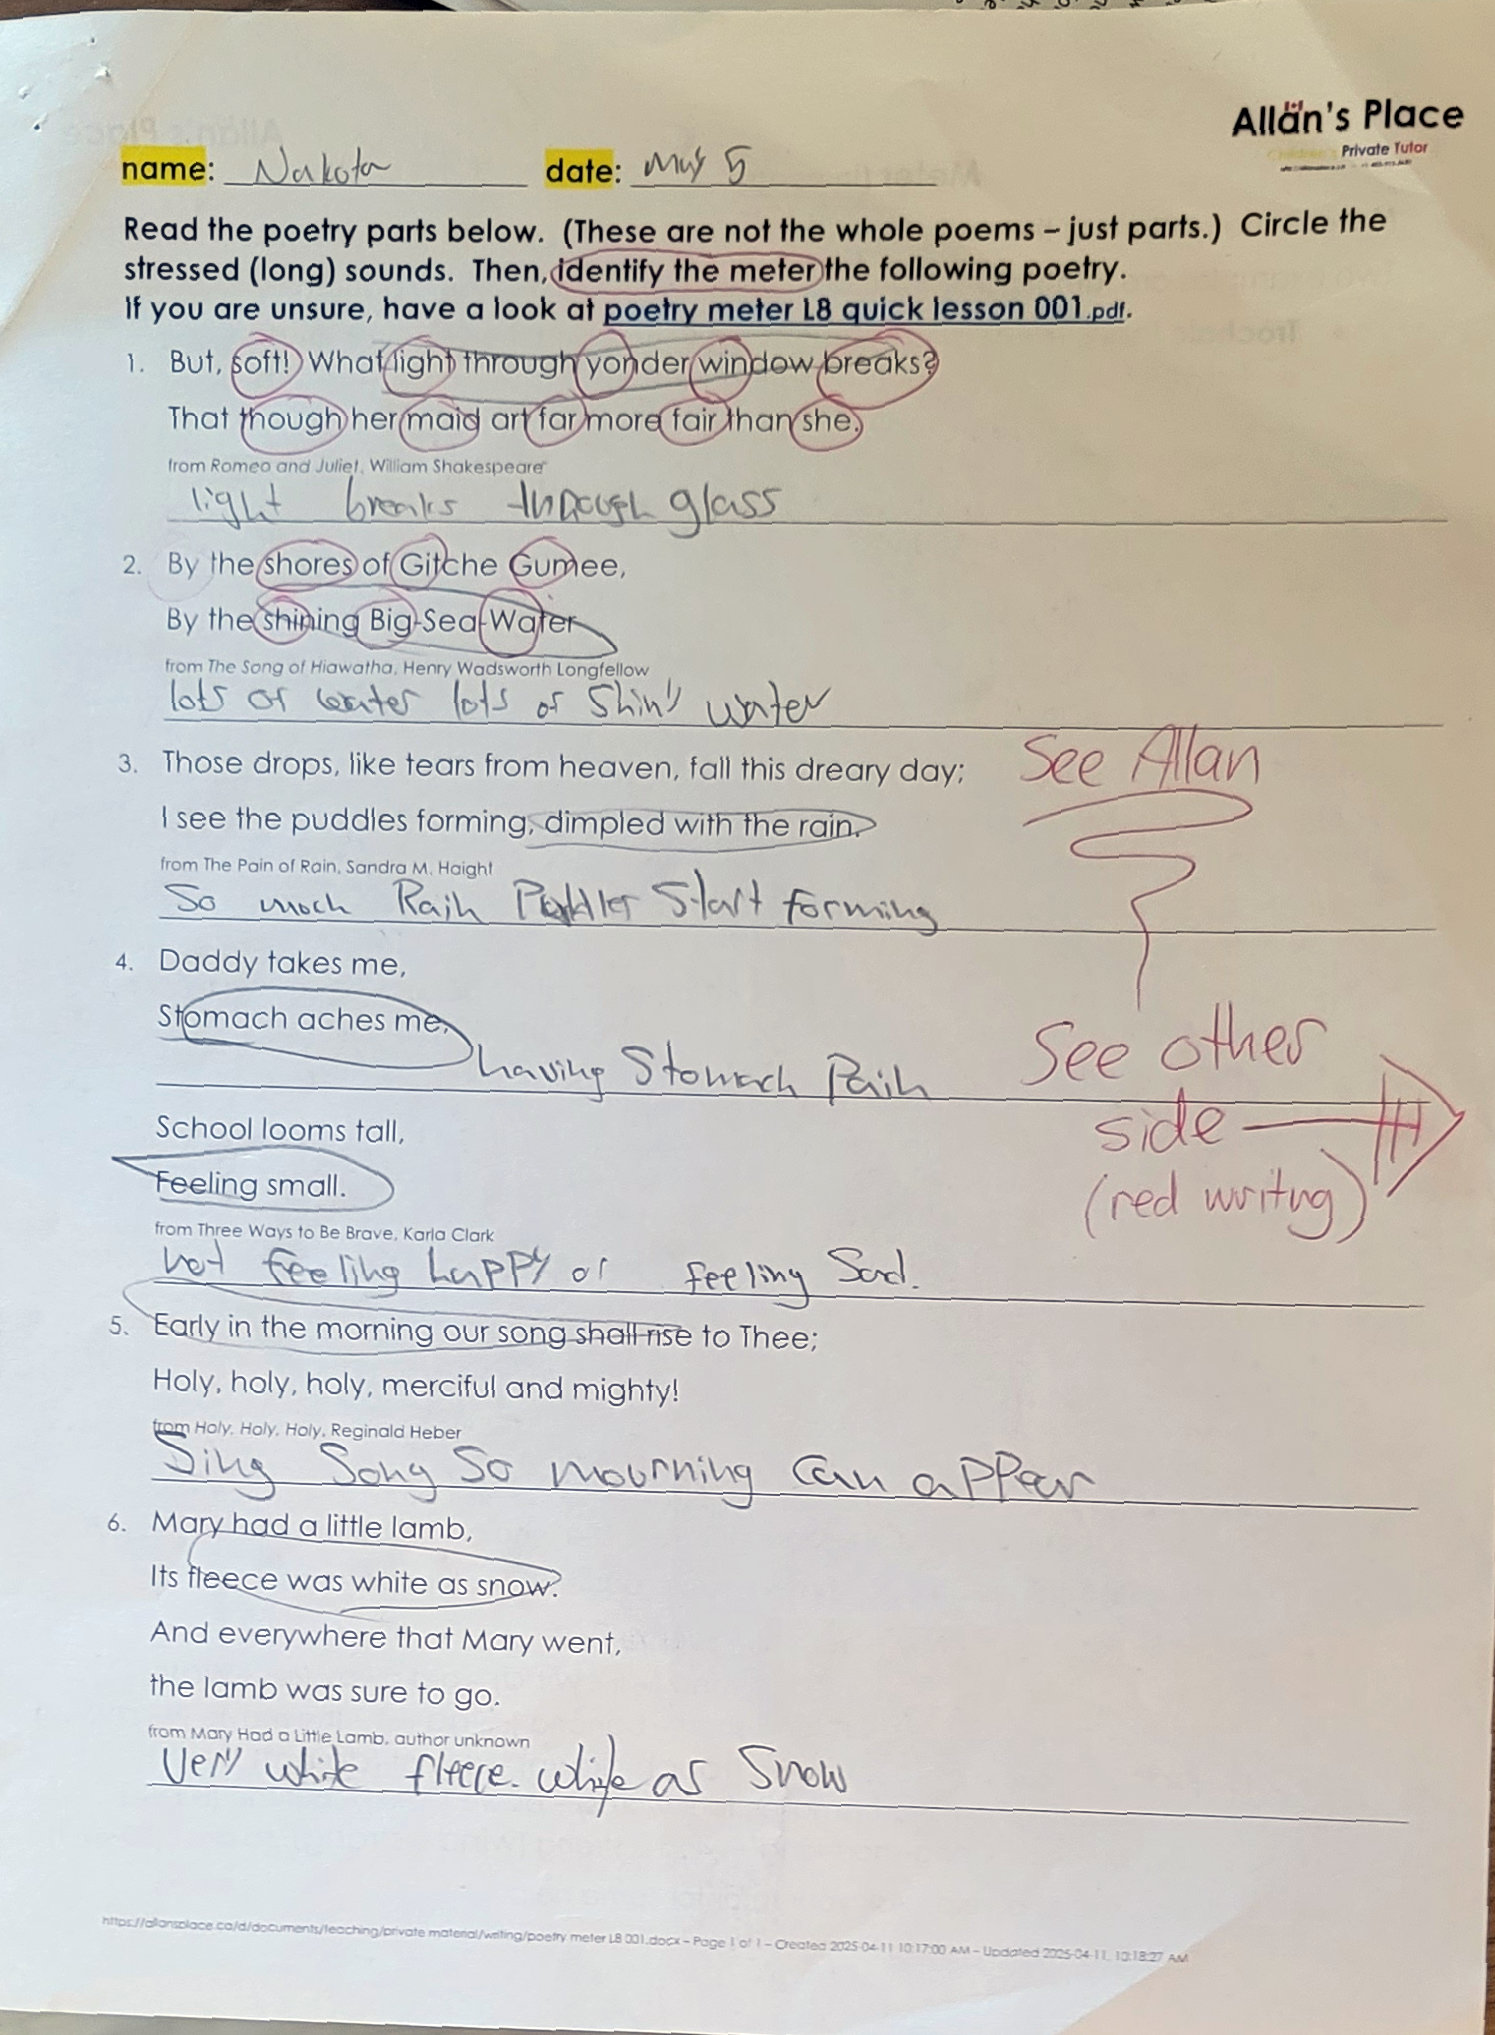 Allän's Place
Private Tutor
name: Nakota date: May 5
Read the poetry parts below. (These are not the whole poems – just parts.) Circle the
stressed (long) sounds. Then, identify the meter the following poetry.
If you are unsure, have a look at poetry meter L8 quick lesson 001.pdf.
1. But, soft! What light through yonder window breaks?
That though her maid art far more fair than she.
from Romeo and Juliet, William Shakespeare
light breaks through glass
2. By the shores of Gitche Gumee,
By the shining Big-Sea-Water
from The Song of Hiawatha, Henry Wadsworth Longfellow
lots of water lots of Shiny water
3. Those drops, like tears from heaven, fall this dreary day;
See Allan
I see the puddles forming, dimpled with the rain.
from The Pain of Rain, Sandra M. Haight
So much Rain Start forming
4. Daddy takes me,
Stomach aches me,
having Stomach Pain
See other
side
(red writing)
School looms tall,
Feeling small.
from Three Ways to Be Brave, Karla Clark
not feeling happy or feeling Sad.
5. Early in the morning our song shall rise to Thee;
Holy, holy, holy, merciful and mighty!
from Holy, Holy, Holy, Reginald Heber
Sing Song So mourning can appear
6. Mary had a little lamb,
Its fleece was white as snow.
And everywhere that Mary went,
the lamb was sure to go.
from Mary Had a Little Lamb, author unknown
Very white fleece. white as Snow
https://allansplace.ca/d/documents/teaching/private material/writing/poetry meter L8 001.docx – Page 1 of 1 – Created 2025-04-11 10:17:00 AM – Updated 2025-04-11, 10:18:27 AM